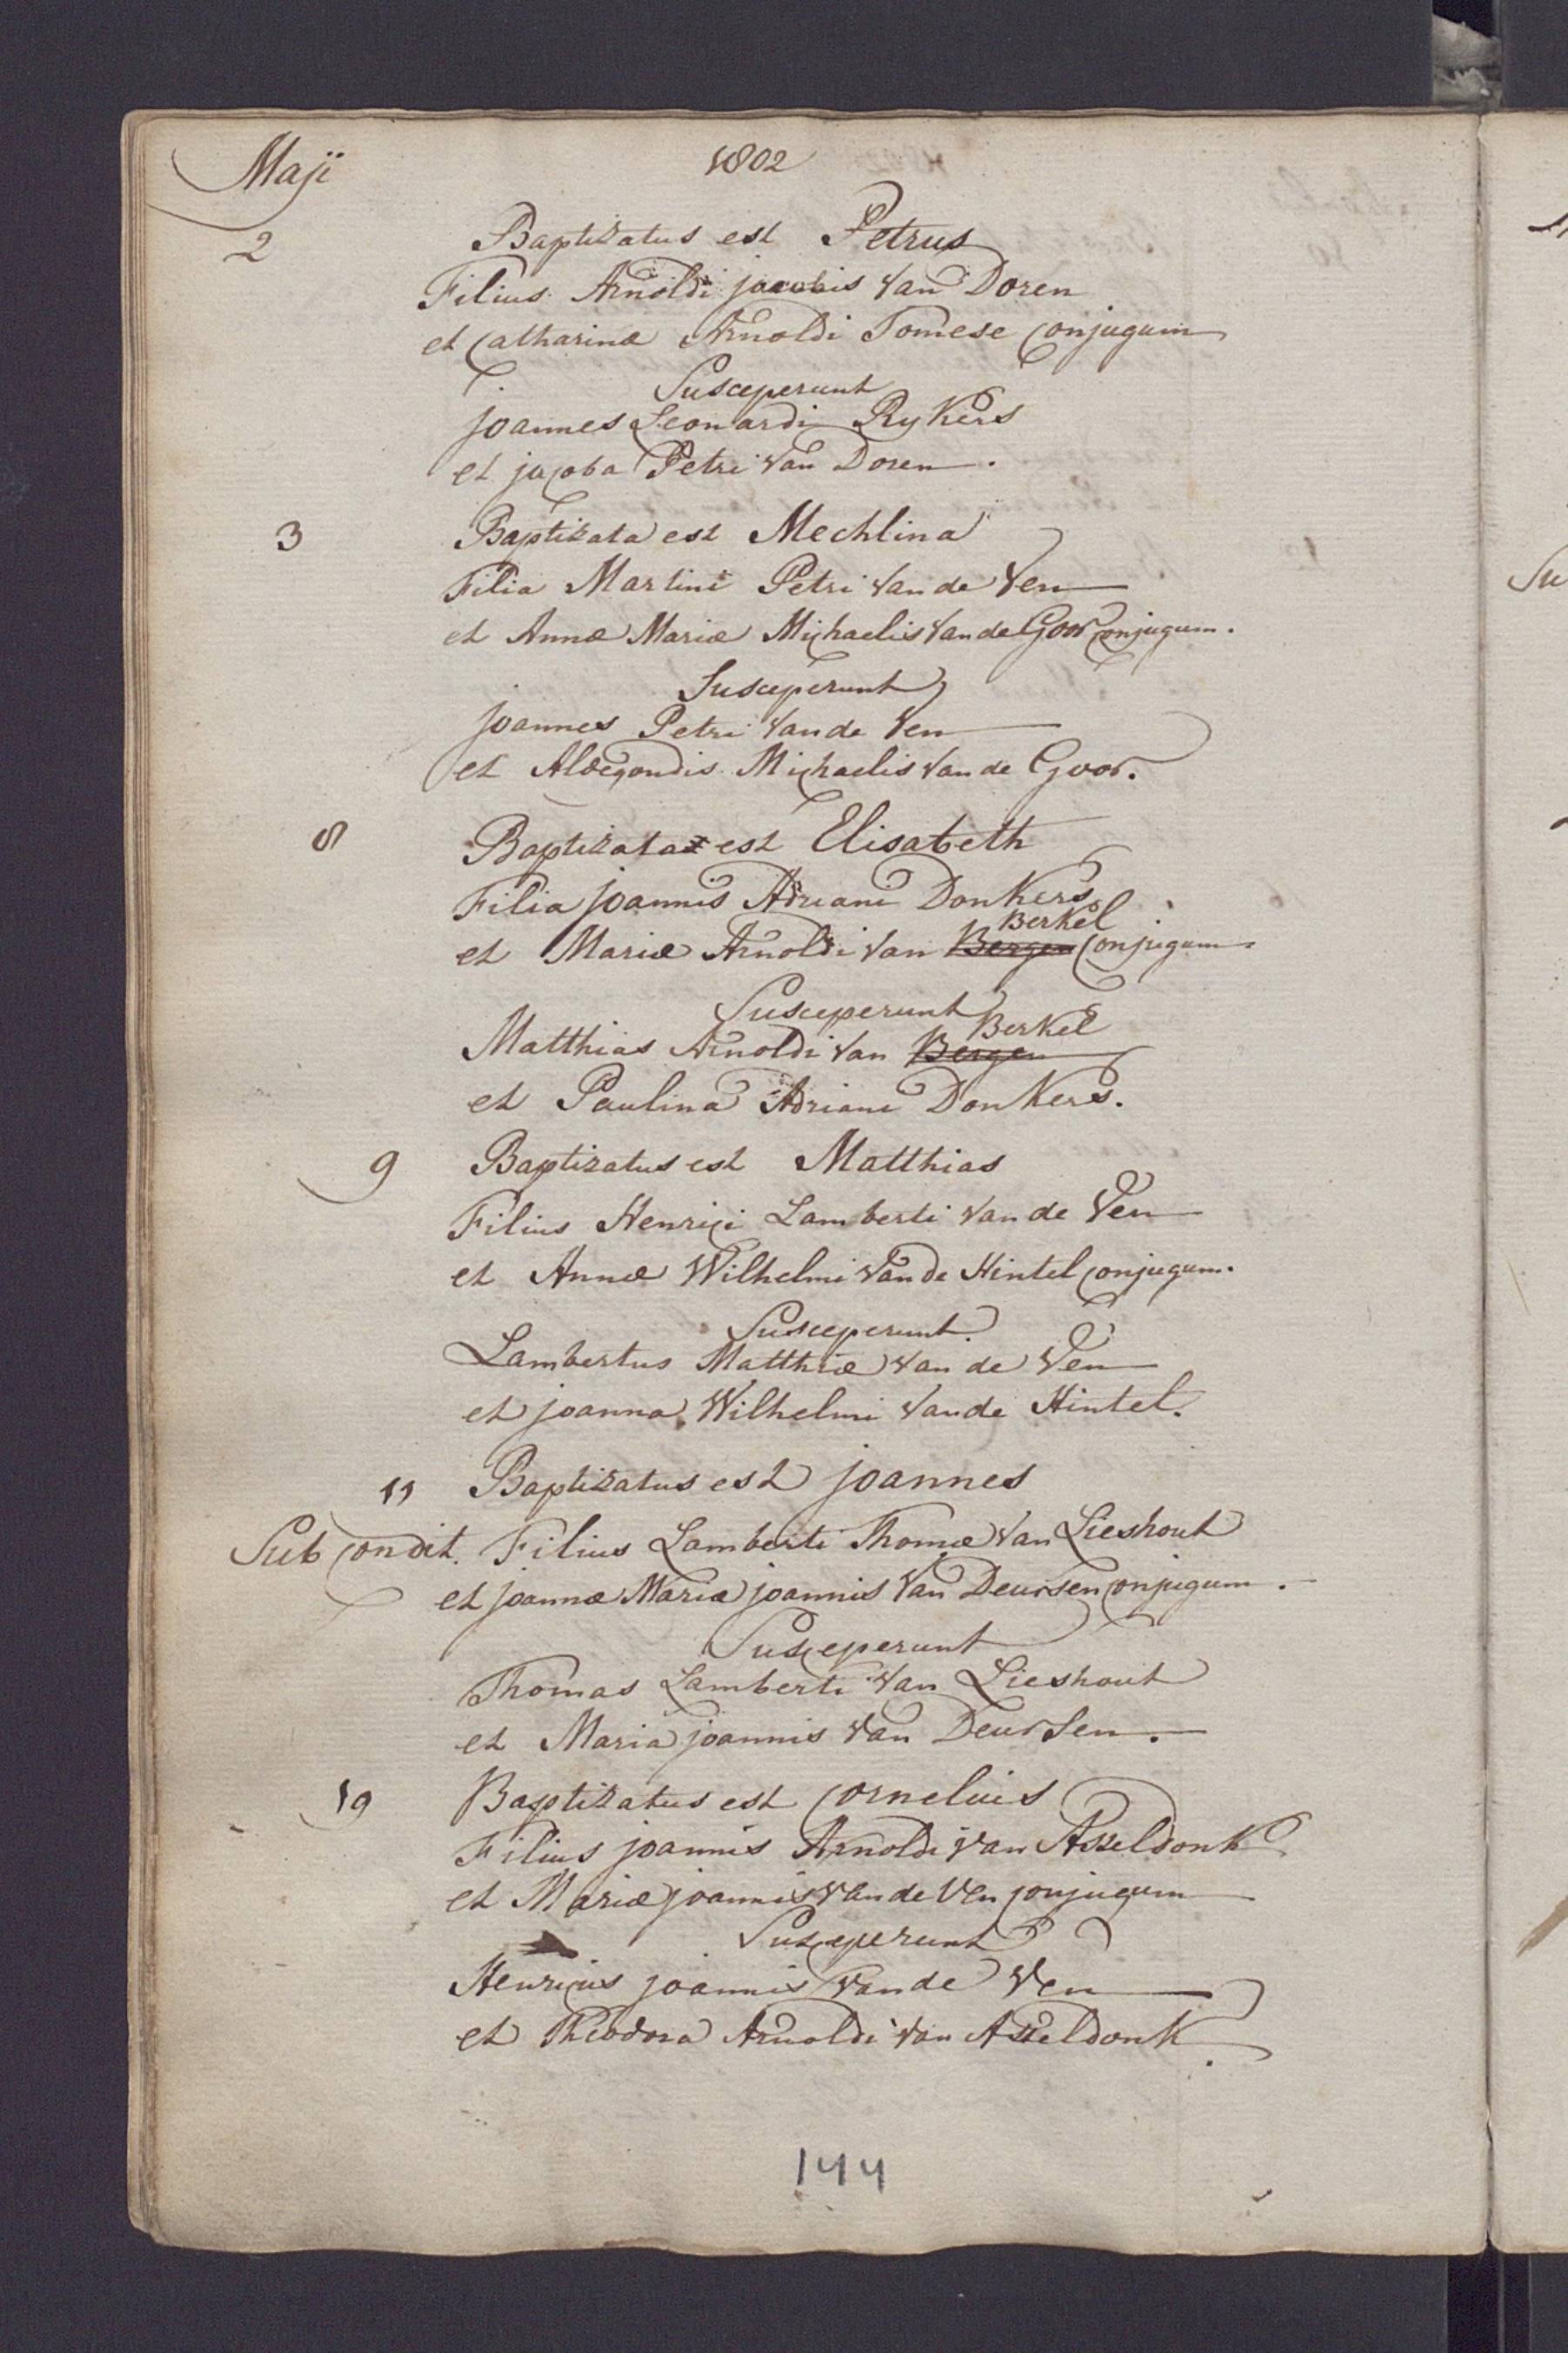 Majï 1802
2 Baptizatus est Petrus
Filius Arnoldi jacobis Van Doren
et Catharinæ Arnoldi Tomese Conjugum
Susceperunt
joannes Leonardi Rykers
et jacoba Petri Van Doren.
3 Baptizata est Mechlina
Filia Martini Petri Van de Ven
et Annæ Mariæ Michaelis Van de Goor Conjugum.
Susceperunt
joannes Petri Van de Ven
et Aldegondis Michaelis Van de Goor.
8 Baptizata est Elisabeth
Filia joannis Adriani Donkers
Berkel
et Mariæ Arnoldi Van Bergen Conjugum
Susceperunt
Berkel
Matthias Arnoldi Van Bergen
et Paulina Adriani Donkers.
9 Baptizatus est Matthias
Filius Henrici Lamberti Van de Ven
et Annæ Wilhelmi Van de Hintel Conjugum.
Susceperunt
Lambertus Matthiæ Van de Ven
et joanna Wilhelmi Van de Hintel.
11 Baptizatus est joannes
Sub Condit. Filius Lamberti Thomæ Van Lieshout
et joannæ Mariæ joannis Van Deursen Conjugum.
Susceperunt
Thomas Lamberti Van Lieshout
et Maria joannis Van Deursen.
19 Baptizatus est Cornelius
Filius joannis Arnoldi Van Asseldonk
et Mariæ joannis Van de Ven Conjugum
Susceperunt
Henricus joannis Van de Ven
et Theodora Arnoldi Van Asseldonk.
144